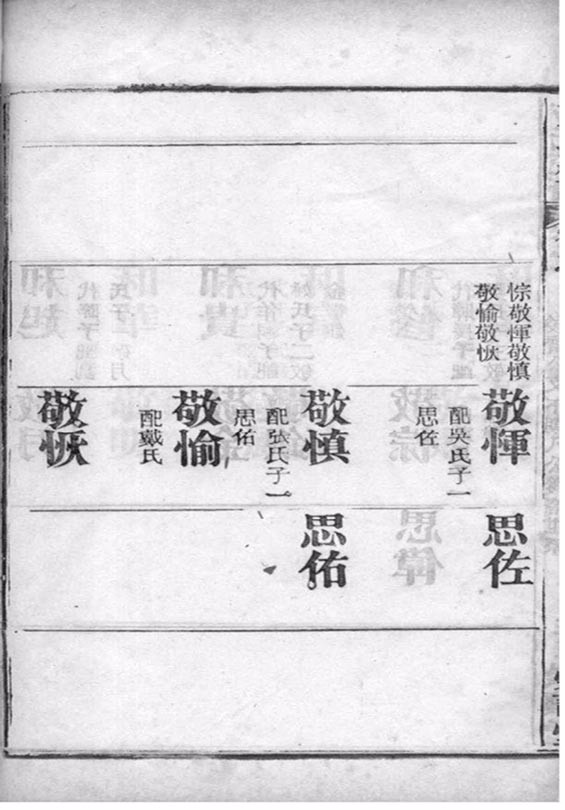 悰敬惲敬慎
敬愉敬恢
敬惲
配吳氏子一
思佐
敬慎
配張氏子一
思佑
敬愉
配戴氏
敬恢
思佐
思佑